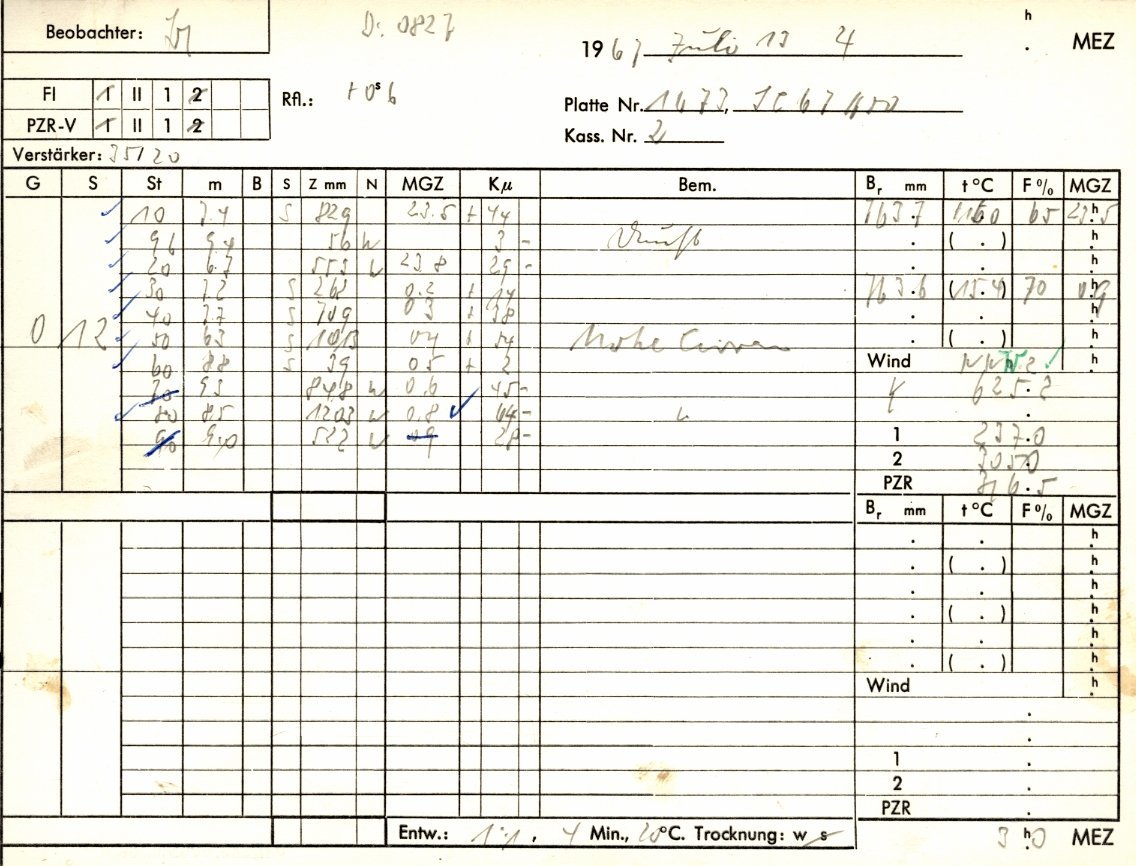 Beobachter:
D: 0827
h
19 67 Juli 13 4 . MEZ
FI I II 1 2
Rfl.: + 0 s 6
Platte Nr. 1673,
PZR-V I II 1 2
Kass. Nr. 2
Verstärker: 35/20
G S St m B S Z mm N MGZ Kμ Bem. Br mm t °C F % MGZ
10 7.4 S 829 23.5 + 44 763.7 65 23.5 h
96 9.4 56 N 3 - Dunst . ( . ) h
20 6.7 553 N 23.8 29 - . . h
30 7.2 S 0.2 + 763.6 (15.4) 70 0.9 h
40 7.7 S 709 0.3 + 38 . . h
0 12 50 6.3 S 1013 0.4 + 54 Hohe Cirren . ( . ) h
60 8.8 S 39 0.5 + 2 Wind h
70 9.5 848 N 0.6 45 - 625.2
80 8.5 1203 N 0.8 44 - .
90 9.0 522 N 0.9 28 - 1 237.0
2
PZR
Br mm t °C F % MGZ
. . h
. ( . ) h
. . h
. ( . ) h
. . h
. ( . ) h
Wind h
.
.
1 .
2 .
PZR .
Entw.: 1:1, 4 Min., 20°C. Trocknung: w s 3 h.0 MEZ